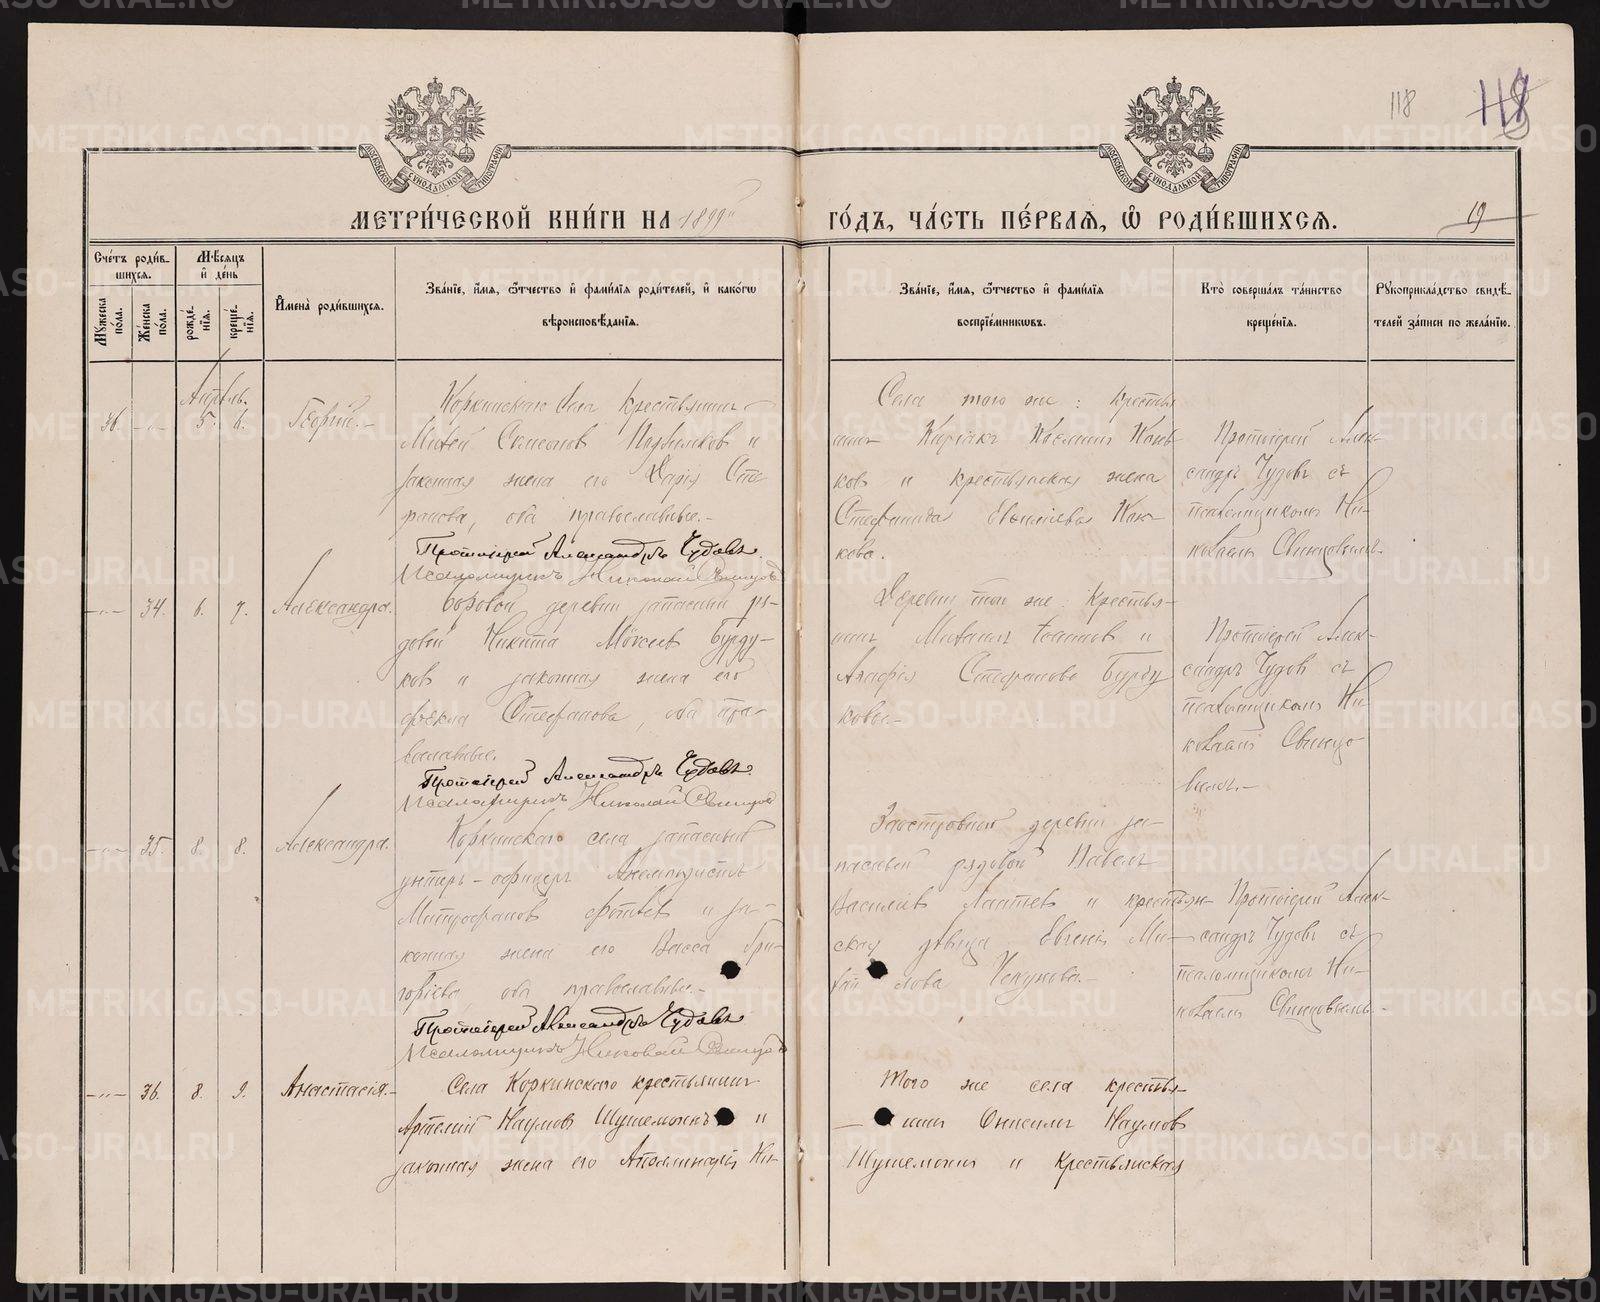 118
118
МОСКОВСКОЙ СУНОДАЛЬНОЙ ТИПОГРАФІИ
МОСКОВСКОЙ СУНОДАЛЬНОЙ ТИПОГРАФІИ
МЕТРИ́ЧЕСКОЙ КНИ́ГИ НА 1899й
ГО́ДЪ, ЧА́СТЬ ПЕ́РВАЯ, Ѡ҆ РОДИ́ВШИХСЯ.
19
Сче́тъ роди́в-
шихся.
Мѣ́сяцъ
и҆ де́нь
Мꙋ́жеска по́ла.
Же́нска по́ла.
рожде́-
нїя.
креще́-
нїя.
И҆мена̀ роди́вшихся.
Зва́нїе, и҆́мя, ѻ҆́тчество и҆ фами́лїя роди́телей, и҆ како́гѡ
вѣроисповѣ́данїя.
Зва́нїе, и҆́мя, ѻ҆́тчество и҆ фами́лїя
воспрїе́мникѡвъ.
Кто̀ соверша́лъ та́инство
креще́нїя.
Рꙋкоприкла́дство свидѣ́-
телей за́писи по жела́нїю.
Апрѣль.
36. -"- 5. 6. Георгій.-
Коркинскаго села крестьянинъ
Симеонов и
законная жена его Дарія Сте
фанова, оба православные.-
Протоіерей Александръ Чудовъ.
Псаломщикъ Николай Свинцов
Села того же: кресть
янинъ Козмин Конь
ков и крестьянская жена
Стефанида
кова.
Протоіерей Алек-
сандръ Чудовъ съ
псаломщикомъ Ни-
колаемъ Свинцовымъ.
-"- 34. 6. 7. Александра.
Боровой деревни запасный ря-
довой Никита Моѵсеев Бурду-
ков и законная жена его
Фекла Стефанова, оба пра-
вославные.
Протоіерей Александръ Чудовъ.
Псаломщикъ Николай Свинцов
Деревни той же крестья-
нинъ Михаилъ Іоаннов и
Агафія Стефанова Бурду
ковы.-
Протоіерей Алек-
сандръ Чудов съ
псаломщикомъ Ни
колаем Свинцо
вымъ.-
-"- 35. 8. 8. Александра.
Коркинскаго села запасный
унтеръ-офицеръ
Митрофанов Фотѣев и за-
конная жена его Васса Гри-
горіева оба православные.-
Протоіерей Александръ Чудовъ
Псаломщикъ Николай Свинцов
Заостровной деревни за-
пасный рядовой Павелъ
Василіев Лаптев и крестьян-
ская дѣвица Евгенія Ми-
хайлова Чекунова.-
Протоіерей Алек-
сандръ Чудовъ съ
псаломщикомъ Ни-
колаемъ Свинцовымъ.-
-"- 36. 8. 9. Анастасія.-
Села Коркинскаго крестьянинъ
Артемій Наумов Шушемоинъ и
законная жена его Аполлинарія Ни-
Того же села крестья-
нинъ Онисимъ Наумов
Шушемоин и крестьянская
METRIKI.GASO-URAL.RU